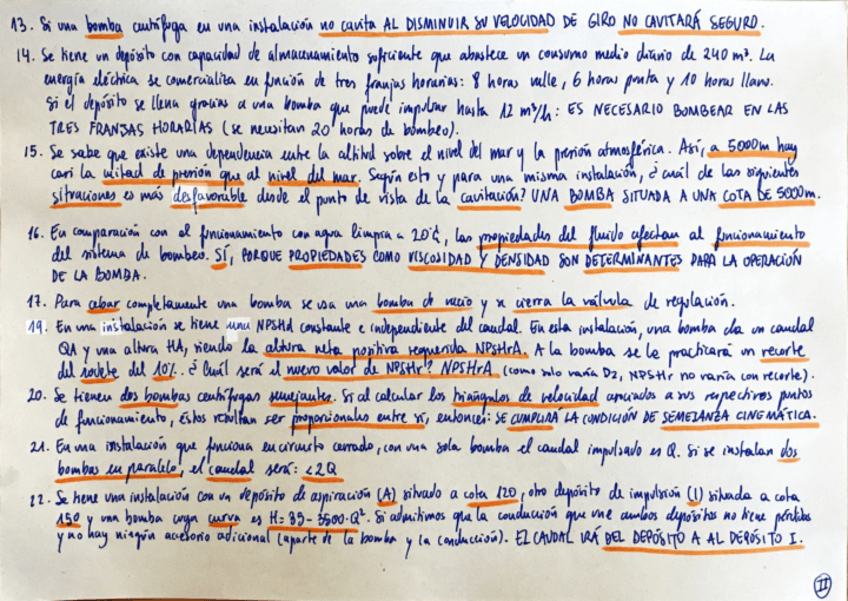 13. Si una bomba centrífuga en una instalación no cavita AL DISMINUIR SU VELOCIDAD DE GIRO NO CAVITARÁ SEGURO.
14. Se tiene un depósito con capacidad de almacenamiento suficiente que abastece un consumo medio diario de 240 m³. La
energía eléctrica se comercializa en función de tres franjas horarias: 8 horas valle, 6 horas punta y 10 horas llano.
Si el depósito se llena gracias a una bomba que puede impulsar hasta 12 m³/h: ES NECESARIO BOMBEAR EN LAS
TRES FRANJAS HORARIAS (se necesitan 20 horas de bombeo).
15. Se sabe que existe una dependencia entre la altitud sobre el nivel del mar y la presión atmosférica. Así, a 5000m hay
casi la mitad de presión que al nivel del mar. Según esto y para una misma instalación, ¿cuál de las siguientes
situaciones es más desfavorable desde el punto de vista de la cavitación? UNA BOMBA SITUADA A UNA COTA DE 5000m.
16. En comparación con el funcionamiento con agua limpia a 20°C, las propiedades del fluido afectan al funcionamiento
del sistema de bombeo. SÍ, PORQUE PROPIEDADES COMO VISCOSIDAD Y DENSIDAD SON DETERMINANTES PARA LA OPERACIÓN
DE LA BOMBA.
17. Para cebar completamente una bomba se usa una bomba de vacío y se cierra la válvula de regulación.
19. En una instalación se tiene una NPSHd constante e independiente del caudal. En esta instalación, una bomba da un caudal
QA y una altura HA, siendo la altura neta positiva requerida NPSHrA. A la bomba se le practicará un recorte
del rodete del 10%. ¿Cuál será el nuevo valor de NPSHr? NPSHrA (como solo varía D2, NPSHr no varía con recorte).
20. Se tienen dos bombas centrífugas semejantes. Si al calcular los triángulos de velocidad asociados a sus respectivos puntos
de funcionamiento, éstos resultan ser proporcionales entre sí, entonces: SE CUMPLIRÁ LA CONDICIÓN DE SEMEJANZA CINEMÁTICA.
21. En una instalación que funciona en circuito cerrado, con una sola bomba el caudal impulsado es Q. Si se instalan dos
bombas en paralelo, el caudal será: <2Q
22. Se tiene una instalación con un depósito de aspiración (A) situado a cota 120, otro depósito de impulsión (I) situada a cota
150 y una bomba cuya curva es H=39-3500·Q². Si admitimos que la conducción que une ambos depósitos no tiene pérdidas
y no hay ningún accesorio adicional (aparte de la bomba y la conducción). EL CAUDAL IRÁ DEL DEPÓSITO A AL DEPÓSITO I.
II